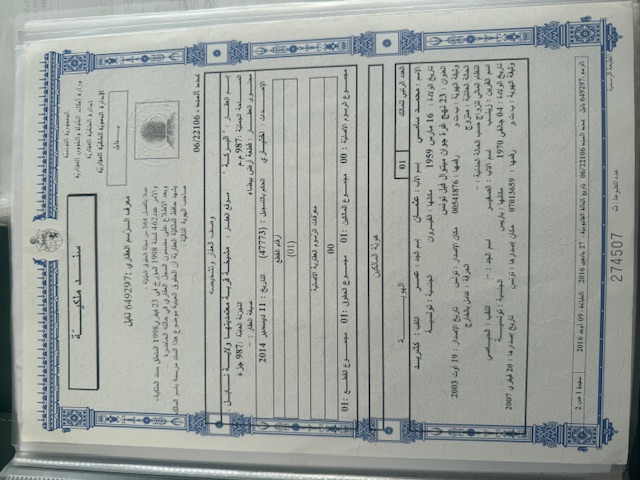 الجمهورية التونسية
وزارة أملاك الدولة والشؤون العقارية
إدارة الملكية العقارية
الإدارة الجهوية للملكية العقارية
بنابل
سند ملكية
معرف الرسم العقاري :649297 نابل
عملا بالفصل 364 من مجلة الحقوق العينية،
والأمر عدد462 لسنة 1998 المؤرخ في 23 فيفري1998 المتعلق بسند الملكية،
وبعد الاطلاع على مضمون السجل العقاري في حالته الحاضرة
يشهد حافظ الملكية العقارية أن الحقوق العينية موضوع هذا السند مرسمة باسم المالك
صاحب الهوية التالية:
عدد السند: 06/22106
وصف العقار وتشخيصه
إسم العقار : " البركة " موقع العقار : مشيخة قربة معتمديتها ولاية نابل
المساحة الجملية: 987 م.م التجزئة العامة: 987 جزء
محتوى العقار : قطعة أرض بيضاء صبغة العقار : -
الإحداث : اختياري الحكم بالتسجيل : (47773) التاريخ : 11 ديسمبر 2014
أرقام القطع
(01)
معرفات الرسوم العقارية الأصلية
00
مجموع الرسوم الأصلية : 00 مجموع المالكين : 01 مجموع الحقوق : 01 مجموع القطع : 01
هوية المالكين
العدد الرتبي للمالك 01 الهوية
الإسم : محمد سامي إسم الأب : عثمان إسم الجد : عمر اللقب : كشريد
تاريخ الولادة : 16 مارس 1959 مكانها : القيروان الجنسية : تونسية
العنوان : 23 نهج غرة جوان ميتوال فيل تونس
وثيقة الهوية : ب.ت.و رقمها : 00541876 مكان الإصدار : تونس تاريخ الإصدار : 19 أوت 2003
الحالة العائلية : متزوج الحرفة : عامل بالخارج
النظام المالي للزواج حسب الحالة المدنية : -
اسم القرين : زينب اسم الأب : الصغير اسم الجد : - اللقب :
تاريخ الولادة : 04 جانفي 1970 مكانها : باريس الجنسية : تونسية
وثيقة الهوية : ب.ت.و رقمها : 07013659 مكان إصدارها : تونس تاريخ إصدارها : 20 فيفري 2007
الرسم :649297 نابل عدد السند 06/22106 تاريخ الحالة القانونية : 27 2016 الطباعة : 09 أوت 2016 صفحة 1 من 2
المطبعة الرسمية عدد المطبوعة: ث 274507